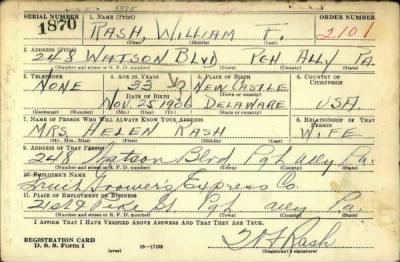 SERIAL NUMBER 1. NAME (Print) ORDER NUMBER
1870 RASH, WILLIAM F. 2101
2. ADDRESS (Print)
248 WATSON BLVD PGH ALLY PA.
(Number and street or R. F. D. number) (Town) (County) (State)
3. TELEPHONE 4. AGE IN YEARS 5. PLACE OF BIRTH 6. COUNTRY OF CITIZENSHIP
NONE 33 NEW CASTLE
DATE OF BIRTH (Town or county)
NOV. 25 1906 DELAWARE USA
(Exchange) (Number) (Mo.) (Day) (Yr.) (State or country)
7. NAME OF PERSON WHO WILL ALWAYS KNOW YOUR ADDRESS 8. RELATIONSHIP OF THAT PERSON
MRS. HELEN RASH WIFE
(Mr., Mrs., Miss) (First) (Middle) (Last)
9. ADDRESS OF THAT PERSON
248 Watson Blvd Pgh Ally Pa.
(Number and street or R. F. D. number) (Town) (County) (State)
10. EMPLOYER'S NAME
Fruit Growers Express Co.
11. PLACE OF EMPLOYMENT OR BUSINESS
21st & Pike St Pgh Ally Pa.
(Number and street or R. F. D. number) (Town) (County) (State)
I AFFIRM THAT I HAVE VERIFIED ABOVE ANSWERS AND THAT THEY ARE TRUE.
REGISTRATION CARD
D. S. S. Form 1 (over) 16—17105 W F Rash